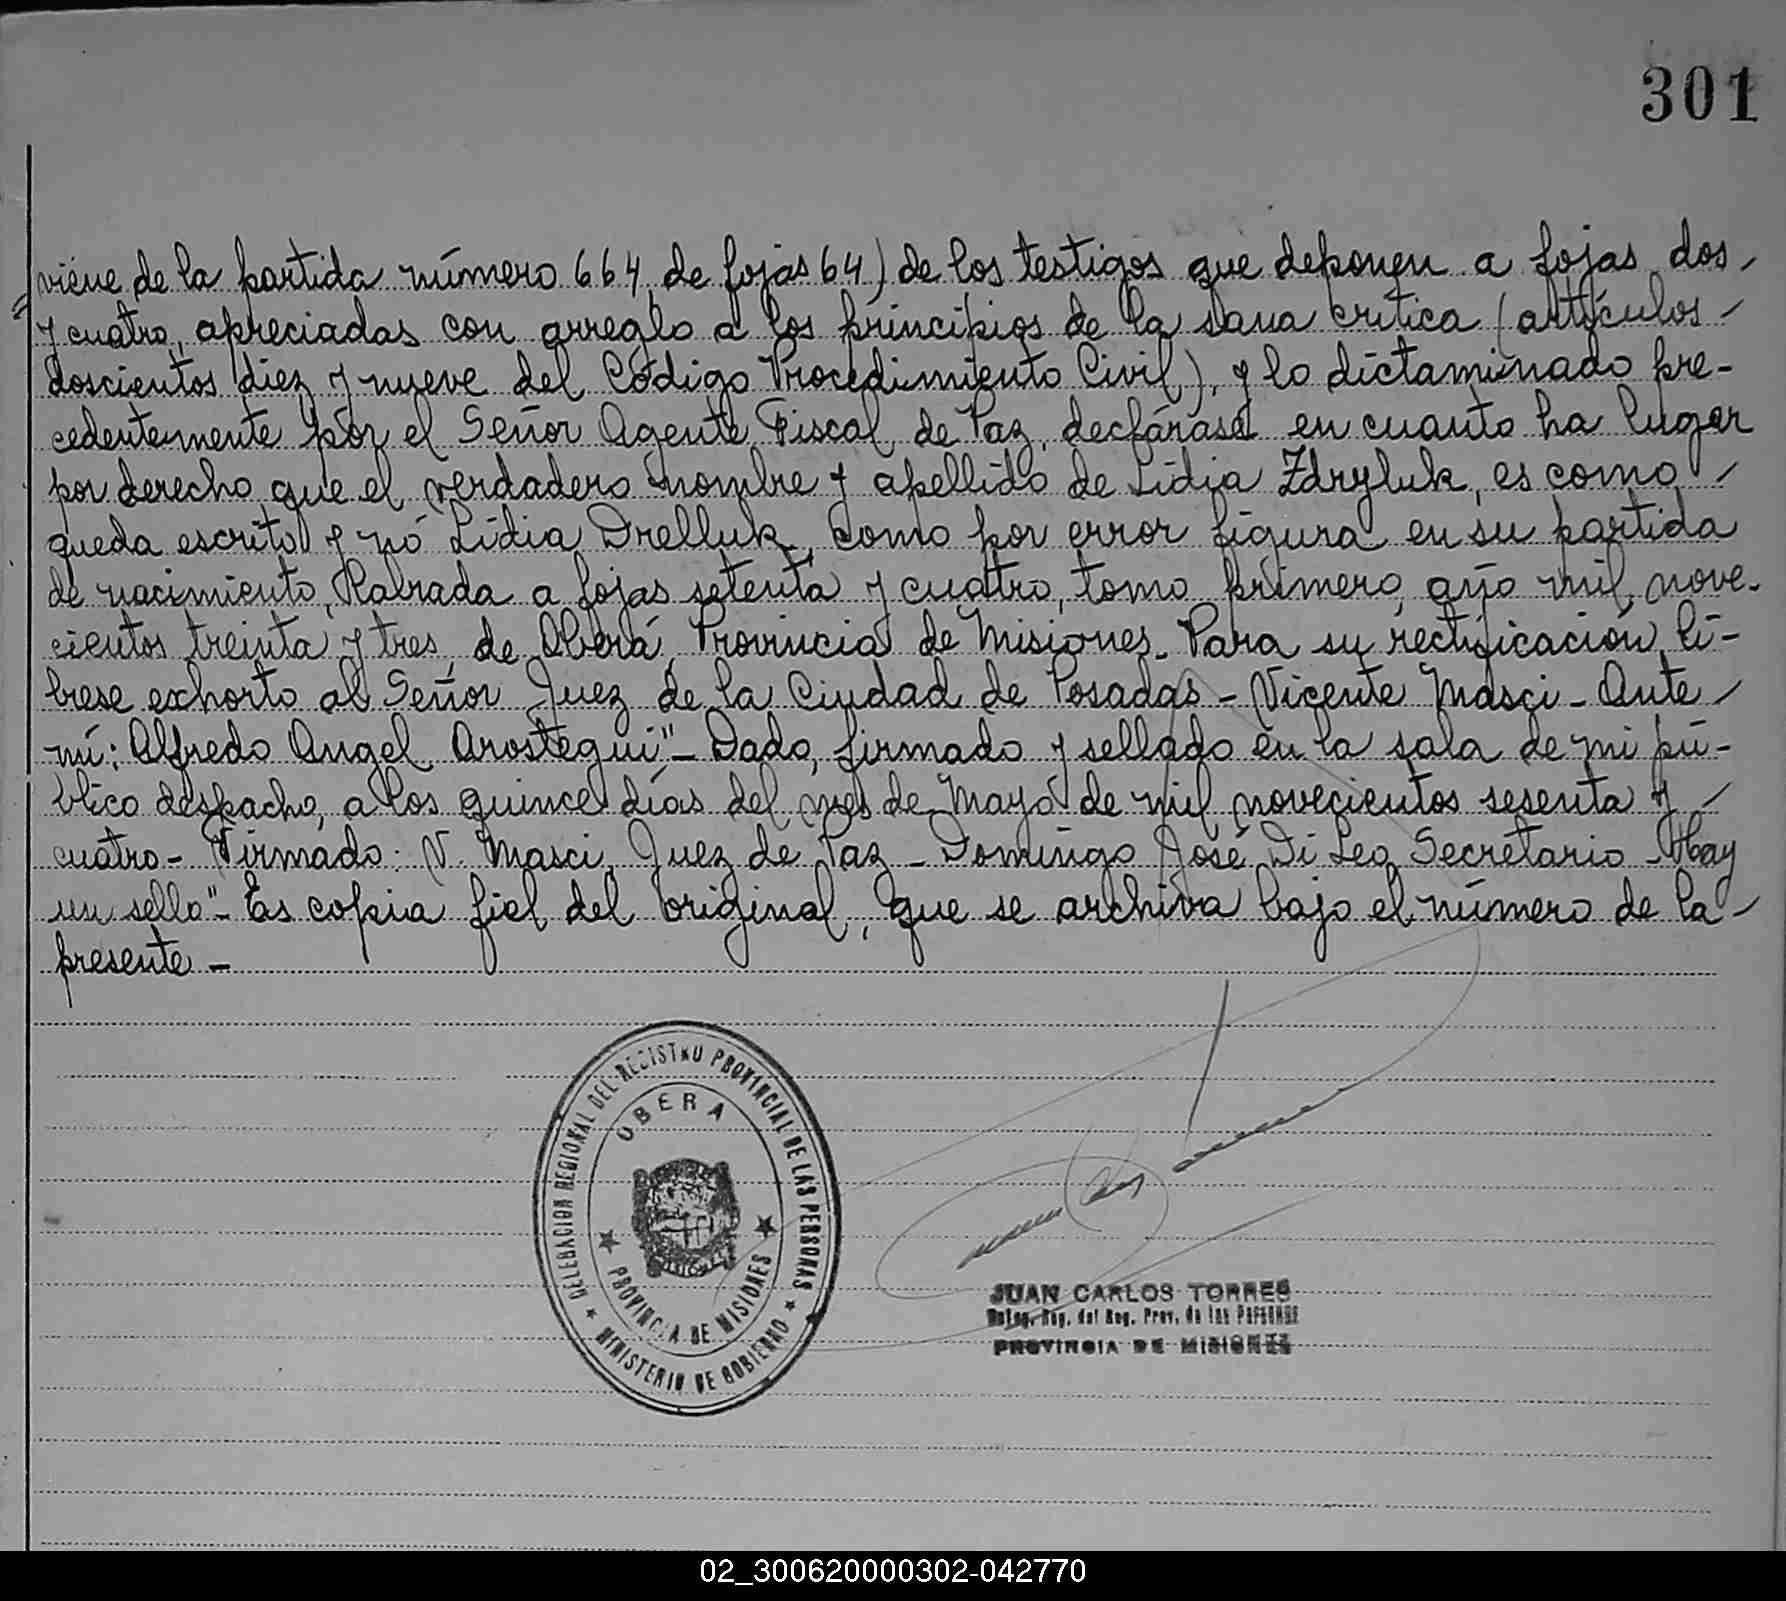 301
viene de la partida número 664, de fojas 64) de los testigos que deponen a fojas dos
y cuatro, apreciadas con arreglo a los principios de la sana crítica (artículos
doscientos diez y nueve del Código Procedimiento Civil), y lo dictaminado pre-
cedentemente por el Señor Agente Fiscal de Paz, declárase en cuanto ha lugar
por derecho que el verdadero nombre y apellido de Lidia Zdryluk, es como
queda escrito y nó Lidia Drelluk, como por error figura en su partida
de nacimiento, labrada a fojas setenta y cuatro, tomo primero, año mil nove-
cientos treinta y tres, de Oberá, Provincia de Misiones. Para su rectificación, lí-
brese exhorto al Señor Juez de la Ciudad de Posadas - Vicente Masci - Ante
mí: Alfredo Angel Arostegui" - Dado, firmado y sellado en la sala de mi pú-
blico despacho, a los quince días del mes de Mayo de mil novecientos sesenta y
cuatro - Firmado: V. Masci, Juez de Paz - Domingo José Di Leo Secretario - Hay
un sello" - Es copia fiel del original, que se archiva bajo el número de la
presente -
DELEGACION REGIONAL DEL REGISTRO PROVINCIAL DE LAS PERSONAS
OBERA
PROVINCIA DE MISIONES
MINISTERIO DE GOBIERNO
JUAN CARLOS TORRES
Deleg. Reg. del Reg. Prov. de las Personas
PROVINCIA DE MISIONES
02_300620000302-042770